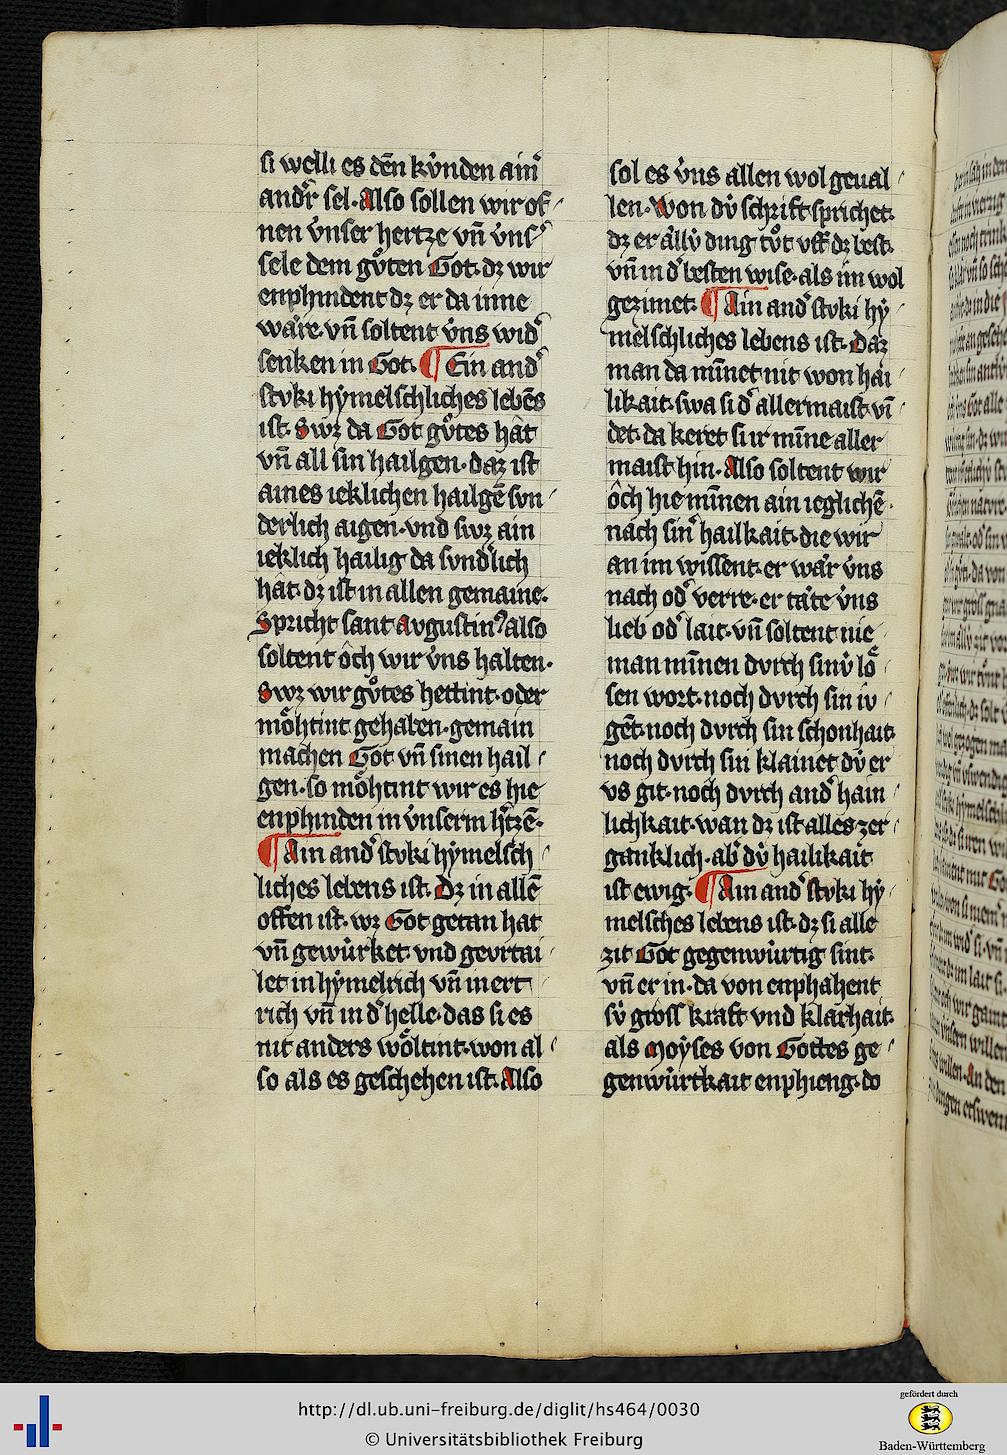 si welli es dēn kv̍nden ain͛
and͛r sel· Also sollen wir of
nen v̍nser hertze vn̄ v̍ns͛
sele dem gůten Got· dz wir
enphindent dz er da inne
wäre· vn̄ soltent v̍ns wid͛
senken in Got· ¶ Ein and͛
stvki hẏmelschliches lebēs
ist· Swz da Got gůtes hât
vn̄ all sin hailgen· daz ist
aines ieklichen hailgē svn
derlich aigen· vnd swz ain
ieklich hailig da svnd͛lich
hât· dz ist in allen gemaine·
Spricht sant avgustin⁹ also
soltent ôch wir v̍ns halten·
Swz wir gůtes hettint· oder
möhtint gehaben· gemain
machen Got vn̄ sinen hail
gen· so möhtint wir es hie
enphinden in v̍nserm h͛tzē·
¶ Ain and͛ stvki hẏmelsch
liches lebens ist· Dz in allē
offen ist· wz Got getan hat
vn̄ gewu̍rket· vnd gevrtai
let in hẏmelrich vn̄ in ert
rich vn̄ in d͛ helle· das si es
nit anders wöltint· won al
so als es geschehen ist· Also
sol es v̍ns allen wol geual
len· Won dv̍ schrift sprichet·
dz er allv̍ ding tůt vff dz best·
vn̄ in d͛ besten wise· als im wol
gezimet· ¶ Ain and͛ stvki hẏ
melschliches lebens ist· Daz
man da mīnet nit won hai
likait· swa si d͛ allermaist vī
det· da keret si ir mīne aller
maist hin· Also soltent wir
ôch hie mīnen ain ieglichē·
nach sin͛ hailkait· die wir
an im wissent· er wär v̍ns
nach od͛ verre· er täte v̍ns
lieb od͛ lait· vn̄ soltent nie
man mīnen dvrch sinv̍ lö
sen wort· noch dvrch sin iv
gēt· noch dvrch sin schonhait·
noch dvrch sin klainet dv̍ er
vs git· noch dvrch and͛ hain
lichkait· wan dz ist alles zer
ganklich· ab͛ dv̍ hailikait
ist ewig· ¶ Ain and͛ stvki hẏ
melsches lebens ist· dz si alle
zit Got gegenwu̍rtig sint·
vn̄ er in· da von enphahent
sv̍ gross kraft vnd klarhait·
als Moẏses von Gottes ge
genwu̍rtkait enphieng· do
http://dl.ub.uni-freiburg.de/diglit/hs464/0030
© Universitätsbibliothek Freiburg
gefördert durch
Baden-Württemberg